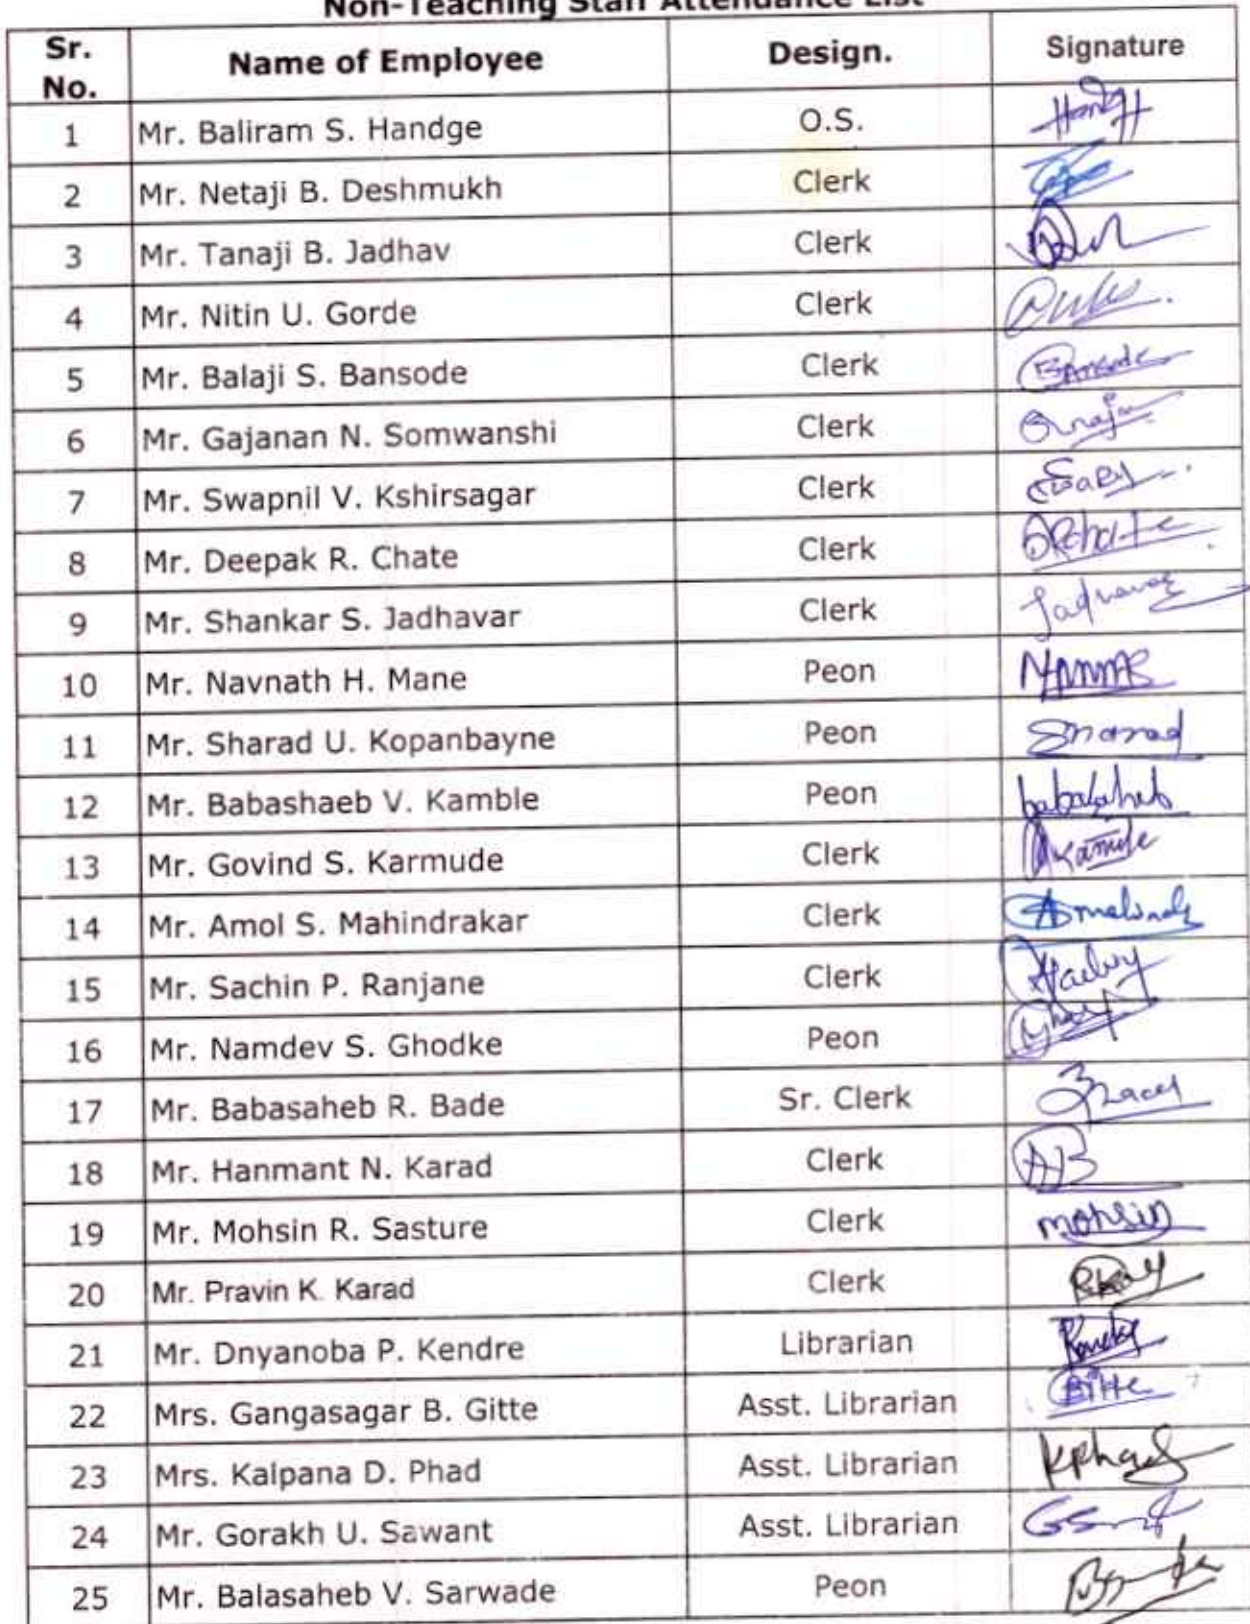 Non-Teaching Staff Attendance List
Sr. No. Name of Employee Design. Signature
1 Mr. Baliram S. Handge O.S.
2 Mr. Netaji B. Deshmukh Clerk
3 Mr. Tanaji B. Jadhav Clerk
4 Mr. Nitin U. Gorde Clerk
5 Mr. Balaji S. Bansode Clerk Bansode
6 Mr. Gajanan N. Somwanshi Clerk
7 Mr. Swapnil V. Kshirsagar Clerk
8 Mr. Deepak R. Chate Clerk DRChate
9 Mr. Shankar S. Jadhavar Clerk Jadhavar
10 Mr. Navnath H. Mane Peon
11 Mr. Sharad U. Kopanbayne Peon Sharad
12 Mr. Babashaeb V. Kamble Peon babasaheb
13 Mr. Govind S. Karmude Clerk
14 Mr. Amol S. Mahindrakar Clerk
15 Mr. Sachin P. Ranjane Clerk
16 Mr. Namdev S. Ghodke Peon
17 Mr. Babasaheb R. Bade Sr. Clerk
18 Mr. Hanmant N. Karad Clerk
19 Mr. Mohsin R. Sasture Clerk mohsin
20 Mr. Pravin K. Karad Clerk
21 Mr. Dnyanoba P. Kendre Librarian
22 Mrs. Gangasagar B. Gitte Asst. Librarian Gitte
23 Mrs. Kalpana D. Phad Asst. Librarian KPhad
24 Mr. Gorakh U. Sawant Asst. Librarian
25 Mr. Balasaheb V. Sarwade Peon